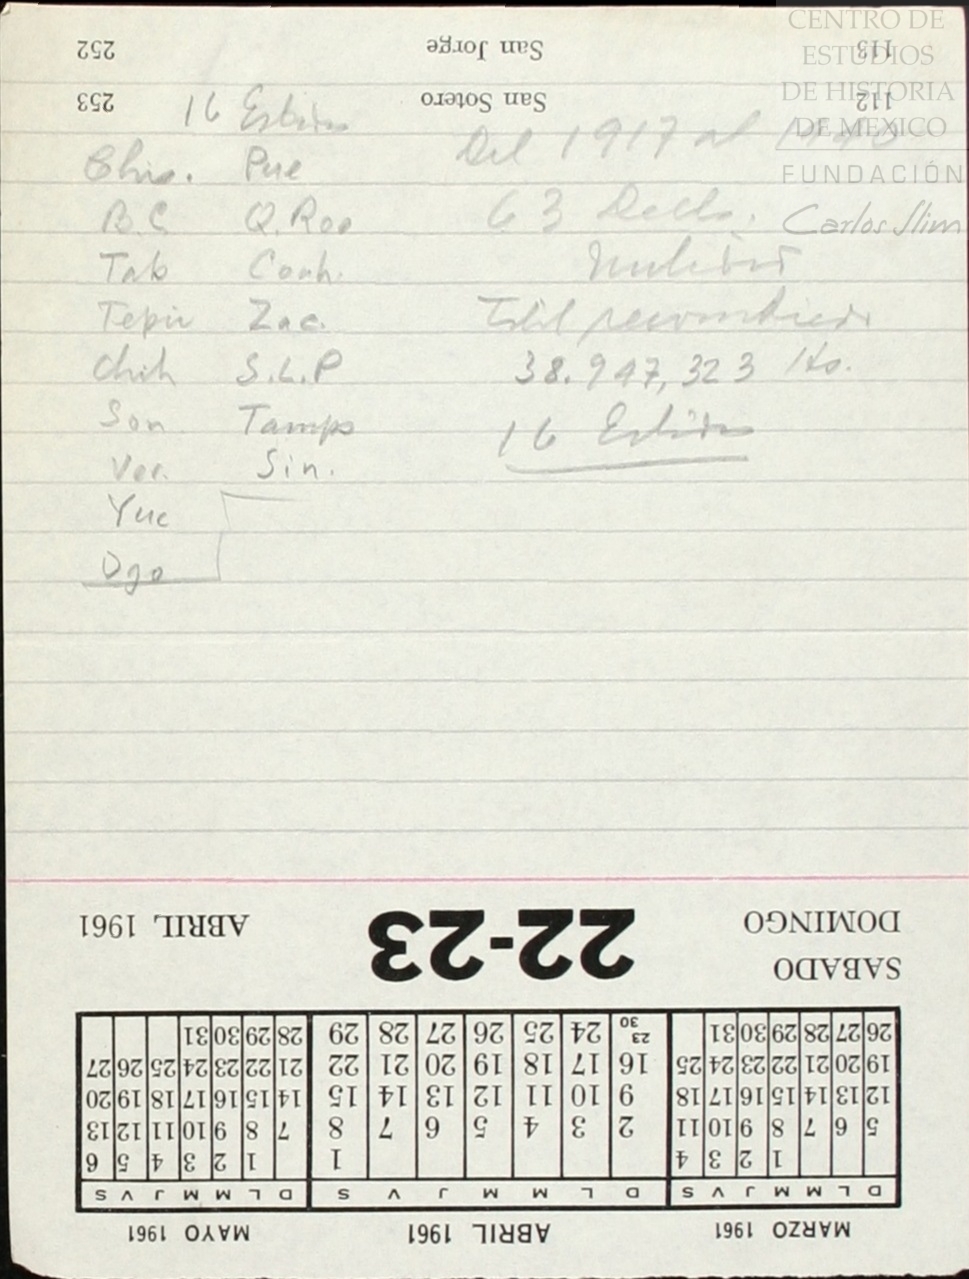 CENTRO DE
ESTUDIOS
DE HISTORIA
DE MEXICO
FUNDACIÓN
Carlos Slim
252 San Jorge 113
253 San Sotero 112
16 Estados
Chis. Pue
B.C Q. Roo
Tab Coah.
Tepic Zac.
Chih S.L.P
Son. Tamps
Ver. Sin.
Yuc
Dgo
Del 1917 al 1940
63 Decls.
Nulidad
Total recombrado
38.947,323 Hs.
16 Estados
SABADO
DOMINGO
22-23
ABRIL 1961
MARZO 1961
D L M M J V S
1 2 3 4
5 6 7 8 9 10 11
12 13 14 15 16 17 18
19 20 21 22 23 24 25
26 27 28 29 30 31
ABRIL 1961
D L M M J V S
1
2 3 4 5 6 7 8
9 10 11 12 13 14 15
16 17 18 19 20 21 22
23 30 24 25 26 27 28 29
MAYO 1961
D L M M J V S
1 2 3 4 5 6
7 8 9 10 11 12 13
14 15 16 17 18 19 20
21 22 23 24 25 26 27
28 29 30 31